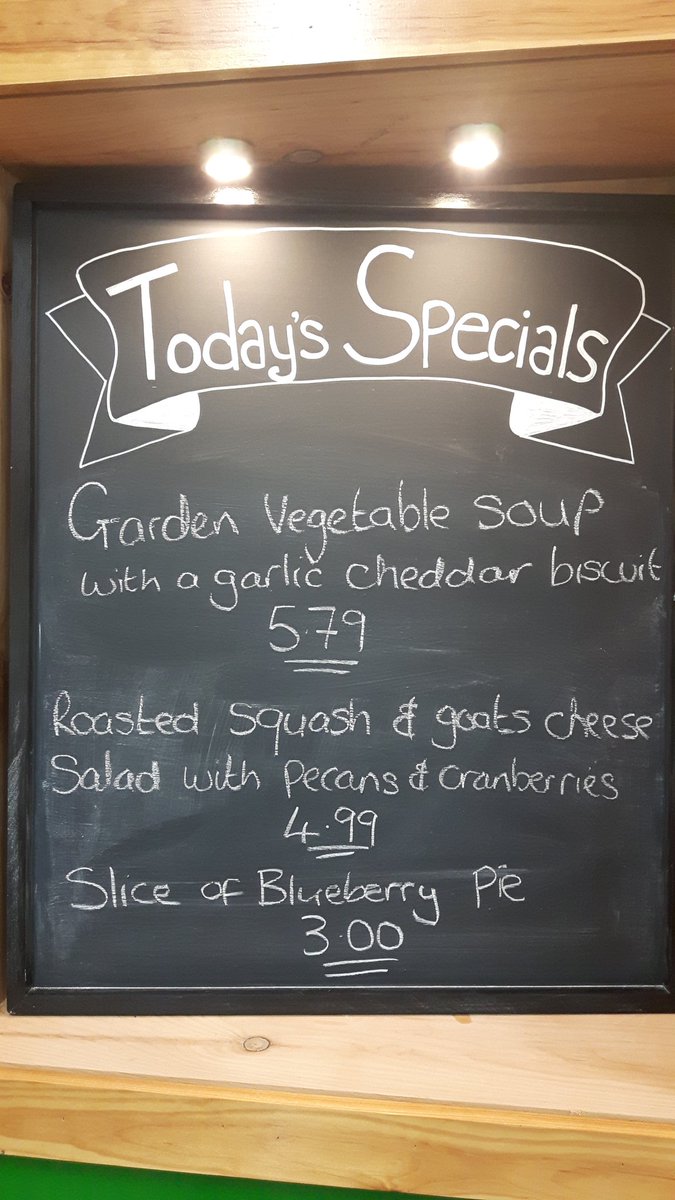 Today's Specials
Garden Vegetable Soup
with a garlic cheddar biscuit
5.79
Roasted Squash & goats cheese
Salad with Pecans & Cranberries
4.99
Slice of Blueberry Pie
3.00